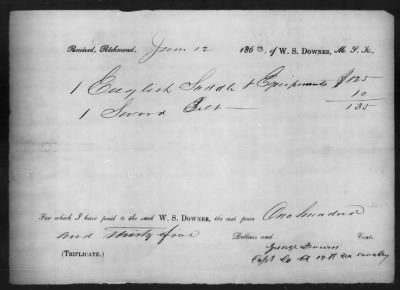 Received, Richmond, June 12 1863, of W. S. DOWNER, M. S. K.,
1 English Saddle & Equipments $125
10
1 Sword Belt — 135
For which I have paid to the said W. S. DOWNER, the cost price One hundred
and Thirty five Dollars and Cents.
(TRIPLICATE.) George
Capt Co A 19th Va Cavalry